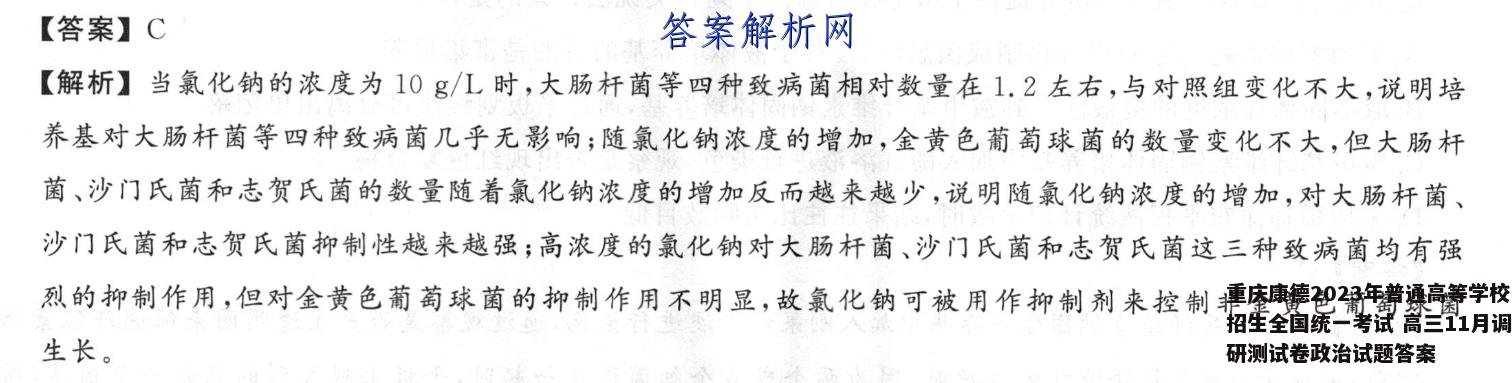 【答案】C
答案解析网
【解析】当氯化钠的浓度为 10 g/L 时,大肠杆菌等四种致病菌相对数量在 1.2 左右,与对照组变化不大,说明培
养基对大肠杆菌等四种致病菌几乎无影响;随氯化钠浓度的增加,金黄色葡萄球菌的数量变化不大,但大肠杆
菌、沙门氏菌和志贺氏菌的数量随着氯化钠浓度的增加反而越来越少,说明随氯化钠浓度的增加,对大肠杆菌、
沙门氏菌和志贺氏菌抑制性越来越强;高浓度的氯化钠对大肠杆菌、沙门氏菌和志贺氏菌这三种致病菌均有强
烈的抑制作用,但对金黄色葡萄球菌的抑制作用不明显,故氯化钠可被用作抑制剂来控制非金黄色葡萄球菌
生长。
重庆康德2023年普通高等学校
招生全国统一考试 高三11月调
研测试卷政治试题答案